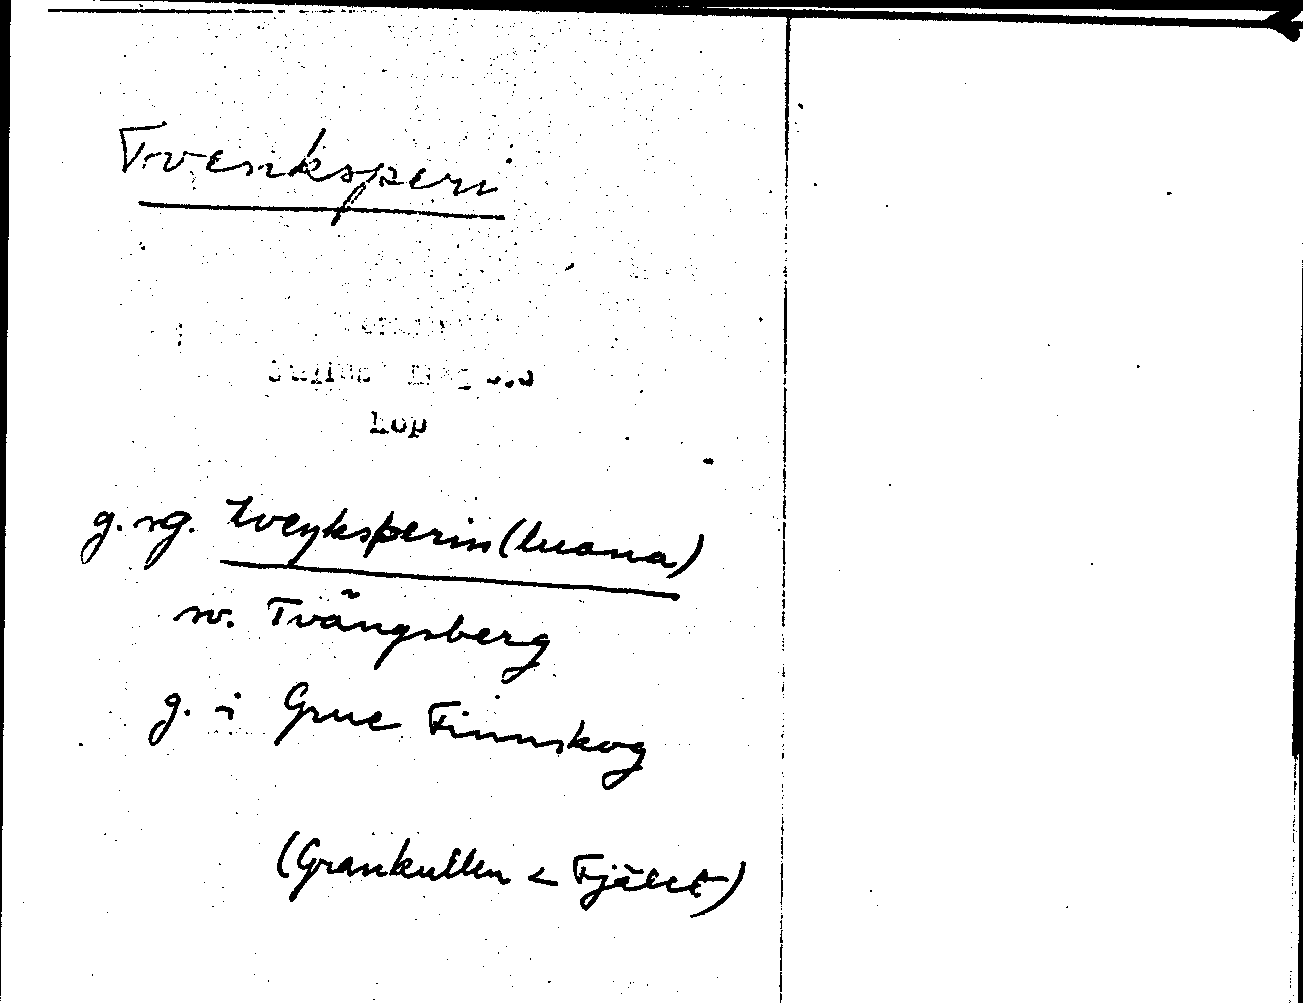 Tvenksperi
hop
g. sg. tveŋksperin (luona)
sv. Tvängsberg
g. i Grue Finnskog
(Grankullen < Fjället)